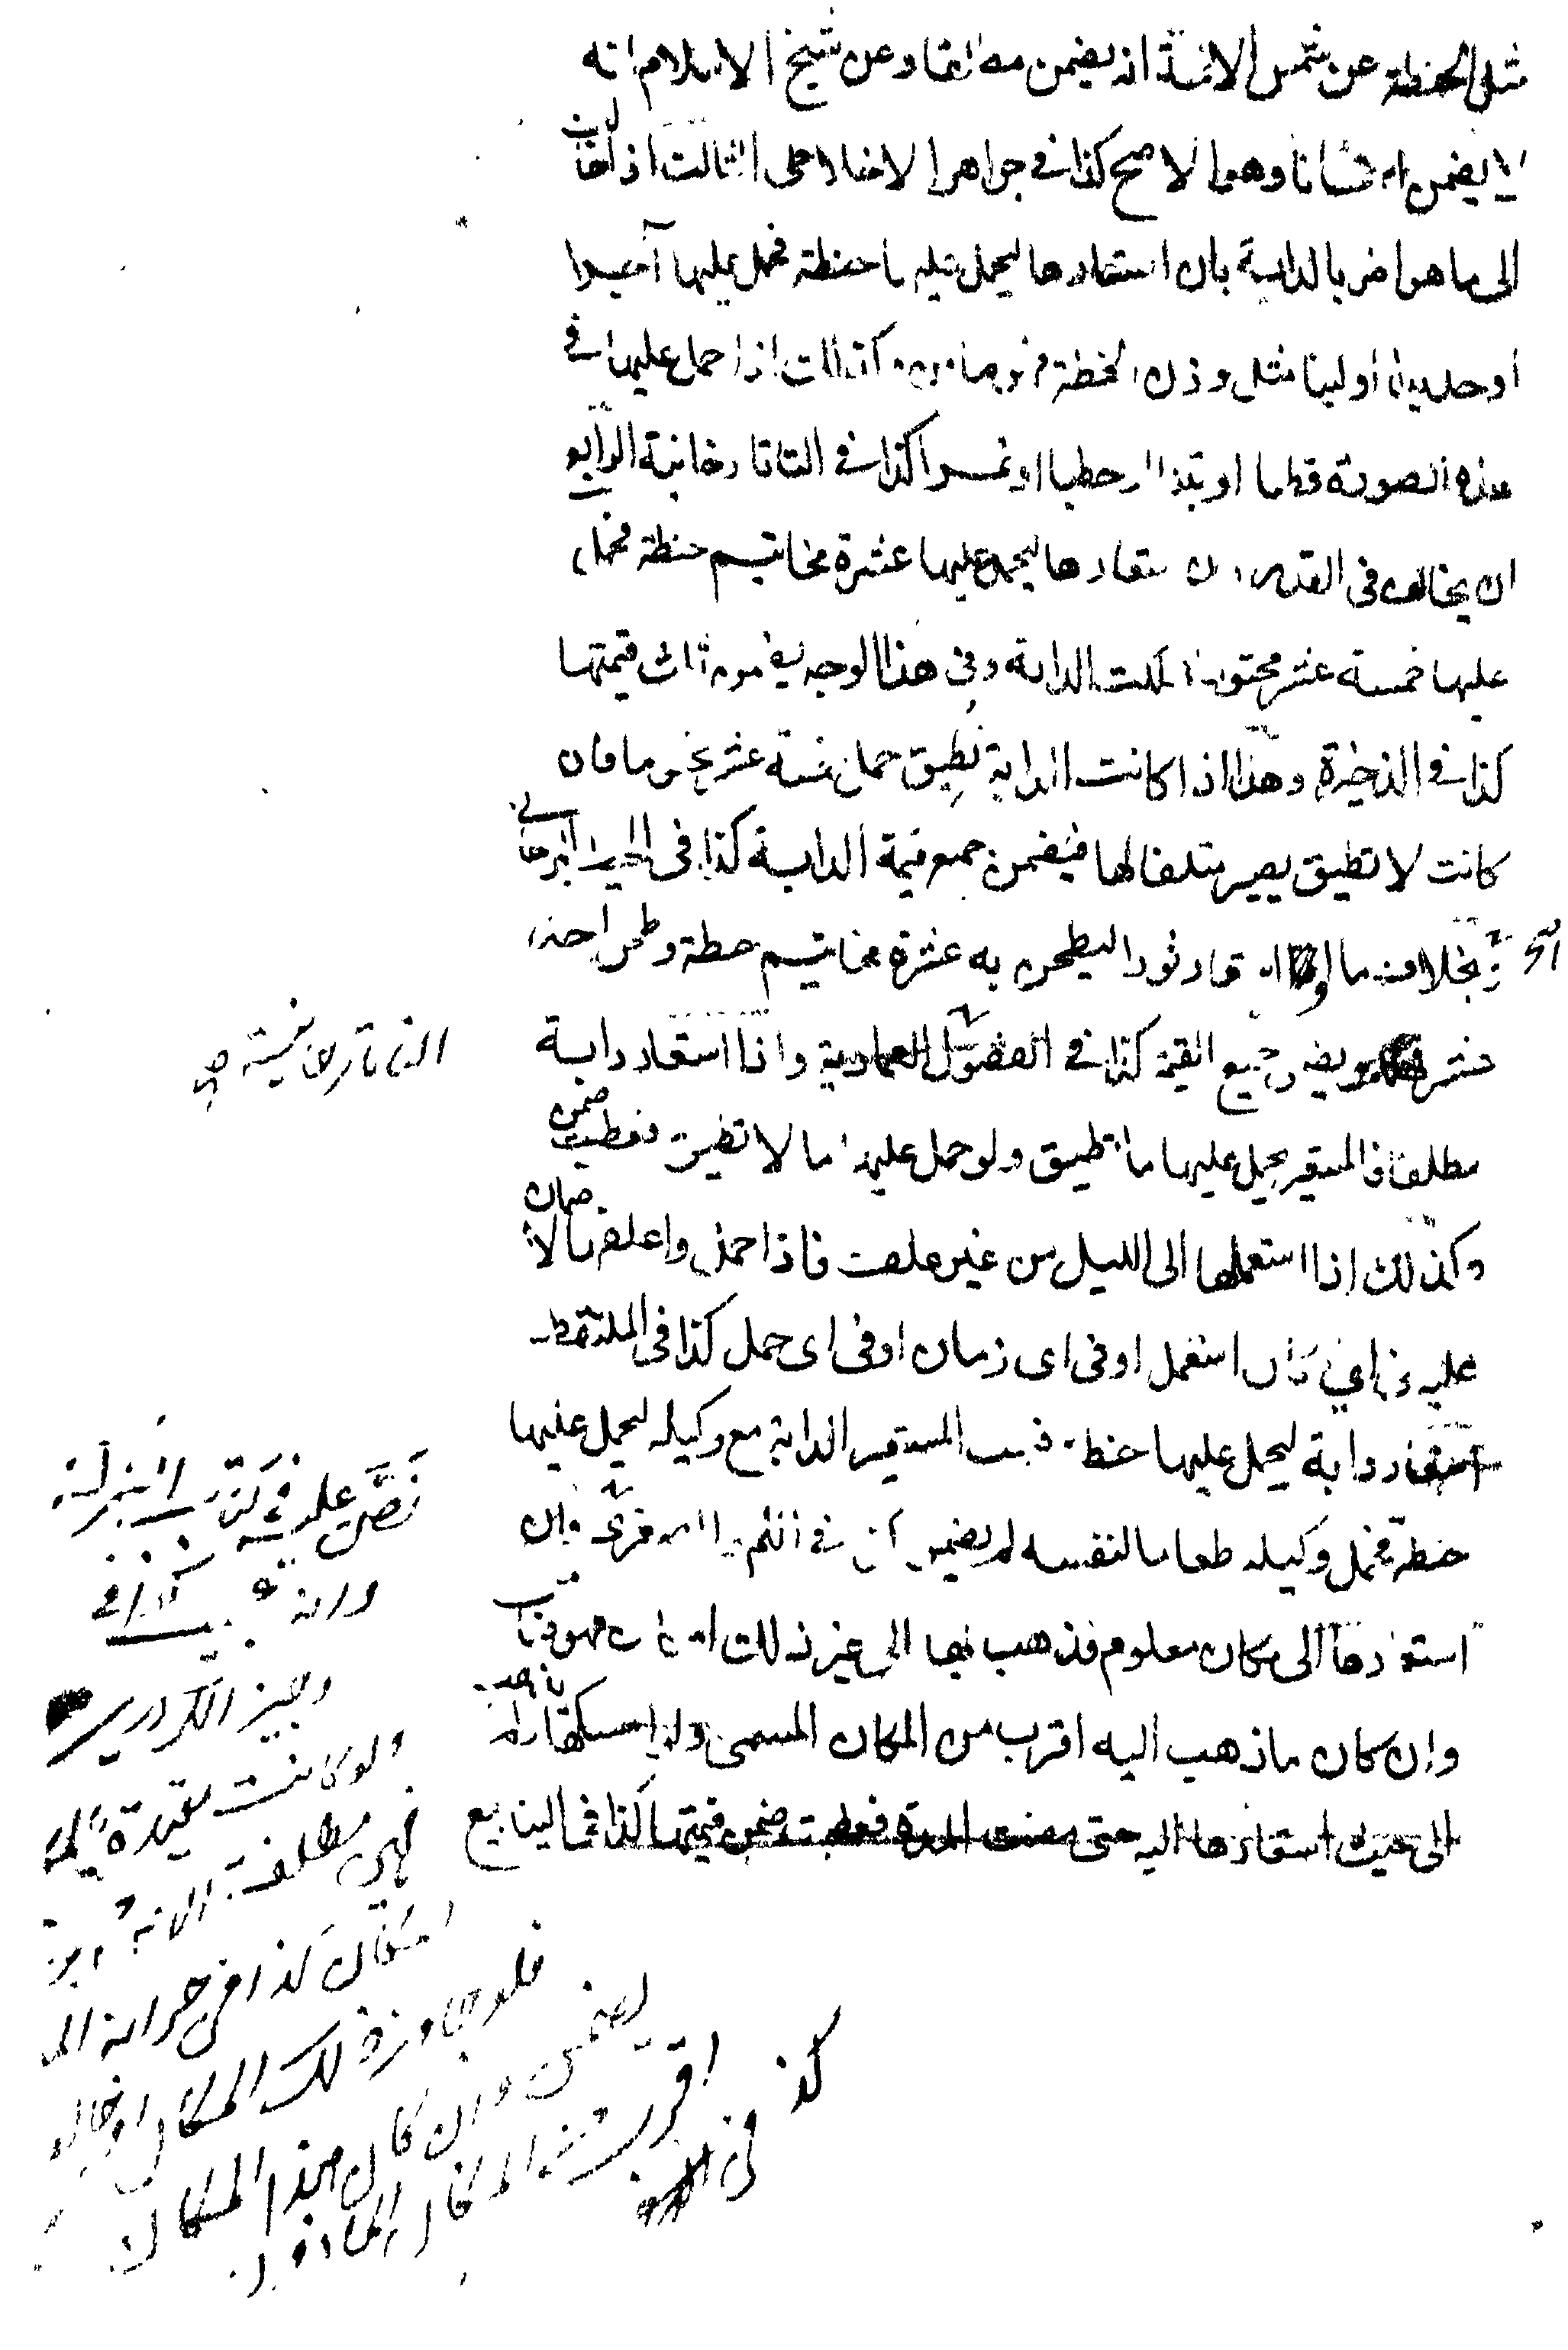 مثل الحنطة عن شمس الائمة انه يضمن مطلقا وعن شيخ الاسلام انه
لا يضمن استحسانا وهو الاصح كذا في جواهر الاخلاطى الثالث اذا خالف
الى ما هو اضر بالدابة بان استعارها ليحمل عليها حنطة فحمل عليها آجرا
او حديدا او لبنا مثل وزن الحنطة فهو ضامن وكذلك اذا حمل عليها في
هذه الصورة قطنا او تبنا او حطبا او تمرا كذا في التاتارخانية الرابع
ان يخالف في القدر بان استعارها ليحمل عليها عشرة مخاتيم حنطة فحمل
عليها خمسة عشر مختوما فهلكت الدابة وفي هذا الوجه يضمن ثلث قيمتها
كذا في الذخيرة وهذا اذا كانت الدابة تطيق حمل خمسة عشر مختوما فان
كانت لا تطيق يصير متلفا لها فيضمن جميع قيمة الدابة كذا في المحيط البرهاني
بخلاف ما لو استعار ثورا ليطحن به عشرة مخاتيم حنطة وطحن احد
عشر ويضمن جميع القيمة كذا في الفصول العمادية واذا استعار دابة
التاتارخانية صح
مطلقا فالمستعير يحمل عليها ما تطيق ولو حمل عليها ما لا تطيق فعطبت ضمن
وكذلك اذا استعملها الى الليل من غير علف فاذا حمل واعلف فلا ضمان
عليه في اي مكان استعمل او في اي زمان او في اي حمل كذا في الملتقط
استعار دابة ليحمل عليها حنطة فبعث المستعير الدابة مع وكيله ليحمل عليها
حنطة فحمل وكيله طعاما لنفسه لم يضمن
نص عليه في كتاب الشركة
استعارها الى مكان معلوم فذهب بها الى غير ذلك
وجيز الكردري
وان كان ما ذهب اليه اقرب من المكان المسمى
الى حيث استعارها اليه حتى مضت المدة فعطبت ضمن قيمتها كذا في الينابيع
ولو كانت مقيدة
فهي مطلقة
المكان كذا في خزانة
فلو جاوز ذلك المكان او خالف
يضمن وان كان هذا المكان
اقرب من المكان الماذون
كذا
في